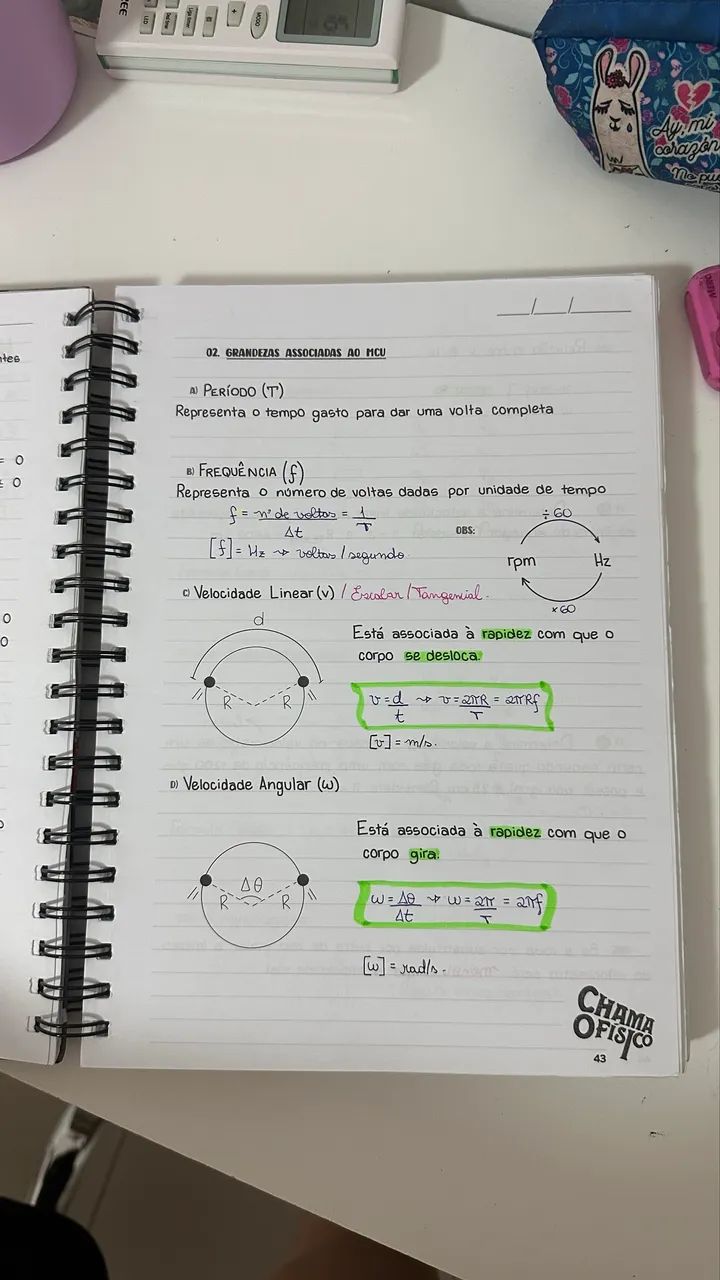 MODO
+
LED
Ay, mi
corazón
No pu
__/__/____
ntes
= 0
± 0
0
0
02. GRANDEZAS ASSOCIADAS AO MCU
A) PERÍODO (T)
Representa o tempo gasto para dar uma volta completa
B) FREQUÊNCIA (f)
Representa o número de voltas dadas por unidade de tempo
f = nº de voltas = 1
Δt T
[f] = Hz → voltas / segundo.
OBS:
÷ 60
rpm Hz
× 60
C) Velocidade Linear (v) / Escalar / Tangencial.
d
R R
Está associada à rapidez com que o
corpo se desloca.
v = d/t → v = 2πR/T = 2πRf
[v] = m/s.
D) Velocidade Angular (ω)
Δθ
R R
Está associada à rapidez com que o
corpo gira.
ω = Δθ/Δt → ω = 2π/T = 2πf
[ω] = rad/s.
CHAMA
O FÍSICO
43